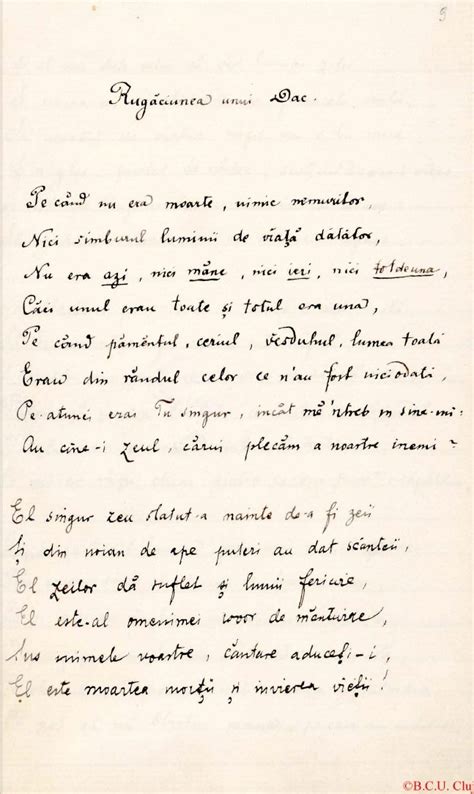 9
Rugăciunea unui Dac.
Pe când nu era moarte, nimic nemuritor,
Nici sîmburul luminii de viață dătător,
Nu era azi, nici mâne, nici ieri, nici totdeuna,
Căci unul erau toate și totul era una,
Pe când pământul, ceriul, văsduhul, lumea toată
Erau din rândul celor ce n'au fost niciodată,
Pe-atunci erai Tu singur, încât mě'ntreb în sine-mi:
Au cine-i zeul, cărui plecăm a noastre inemi?
El singur zeu stătut-a nainte de-a fi zeii
Și din noian de ape puteri au dat scânteii,
El zeilor dă suflet și lumii fericire,
El este-al omenimei isvor de mântuire,
Sus inimele voastre, cântare aduceți-i,
El este moartea morții și învierea vieții!
©B.C.U. Cluj